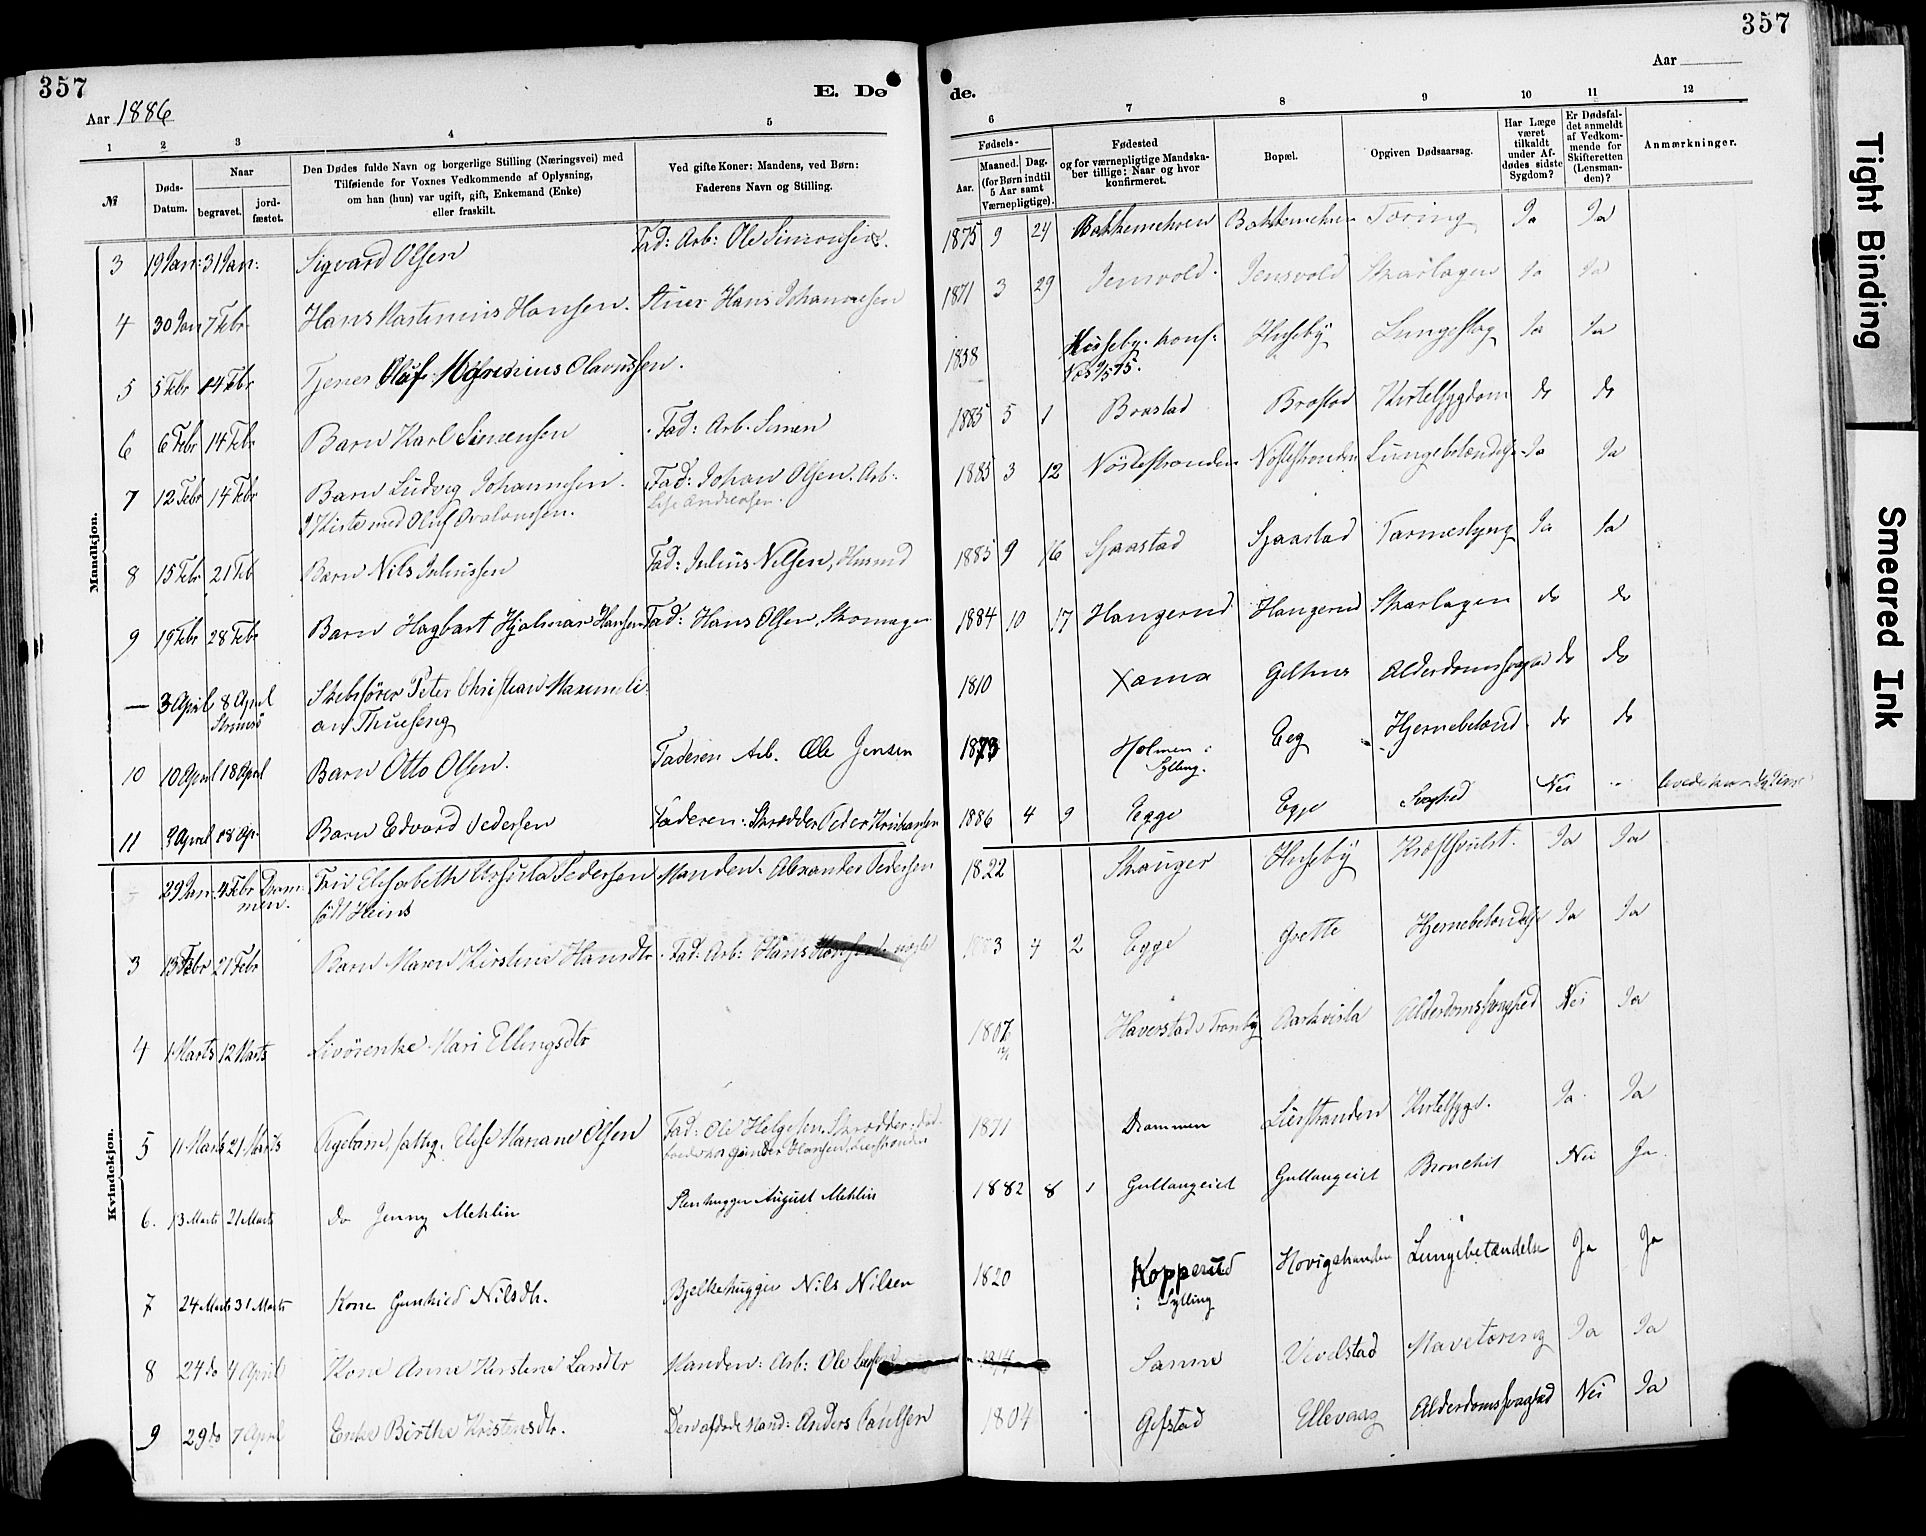 357
357
Aar 1886
E. Dø
de.
Aar
1 2 3 4 5
6 7 8 9 10 11 12
№
Døds-Datum.
Naar
begravet.
jord-fæstet.
Den Dødes fulde Navn og borgerlige Stilling (Næringsvei) med
Tilføiende for Voxnes Vedkommende af Oplysning,
om han (hun) var ugift, gift, Enkemand (Enke)
eller fraskilt.
Ved gifte Koner: Mandens, ved Børn:
Faderens Navn og Stilling.
Fødsels-
Aar.
Maaned.
Dag.
(for Børn indtil
5 Aar samt
Værnepligtige).
Fødested
og for værnepligtige Mandska-
ber tillige: Naar og hvor
konfirmeret.
Bopæl.
Opgiven Dødsaarsag.
Har Læge
været
tilkaldt
under Af-
dødes sidste
Sygdom?
Er Dødsfal-
det anmeldt
af Vedkom-
mende for
Skifteretten
(Lensman-
den)?
Anmærkninger.
Mandkjøn.
3 19 Jan: 31 Jan: Sigvard Olsen Fad: Arb: Ole Simonsen. 1875 9 24 Bakkemehren Bakkemehren Tæring Ja Ja
4 30 Jan 7 Febr Hans Martinius Hansen. Stuer Hans Johannesen 1871 3 29 Jensvold. Jensvold Skarlagen Ja Ja
5 5 Febr 14 Febr Tjener Oluf Olavussen. 1858 Husseby. konf: Huseby Lungeslag Ja Ja
6 6 Febr 14 Febr Barn Karl Simensen Fad: Arb. Simen 1885 5 1 Brastad Brastad Kirtelsygdom do do
7 12 Febr 14 Febr Barn Ludvig Johannesen. Fad: Johan Olsen. Arb: 1885 3 12 Nøstestranden Nøstestranden Lungebetændelse Ja Ja
I Kiste med Oluf
8 15 Febr 21 Feb Barn Nils Juliussen Fad: Julius Nilsen, Husmd 1885 9 16 Sjaastad Sjaastad Ja Ja
9 19 Febr 28 Febr Barn Hagbart Hjalmar Hansen Fad: Hans Olsen, Skomager 1884 10 17 Haugerud Haugerud Skarlagen do do
— 3 April 8 April Skibsfører Peter Christian Maximili- 1810 Gilhus Alderdomssvaghed do do
Strømsø an Thueseng
10 10 April 18 April Barn Otto Olsen. Faderen Arb. Ole Jensen 1873 Holmen i Eeg Hjernebetænd. do do
Sylling.
11 9 April 18 Apr Barn Edvard Pedersen Faderen: Skrædder Peder Kristiansen 1886 4 9 Egge Egge Svaghed Nei
Kvindekjøn.
29 Jan: 4 Febr Dram- Fru Elisabeth Ursula Pedersen Manden. Alexander Pedersen 1822 Stavanger Huseby Kræftsvulst. Ja Ja
men. født Heins
3 13 Febr 21 Febr Barn Maren Kirstine Hansdtr. Fad: Arb: Hans 1883 4 2 Egge Grette Hjernebetændelse Ja Ja
4 1 Marts 12 Marts Livørenke Mari Ellingsdtr 1807 Haverstad, Tranby Alderdomssvaghed Nei Ja
5 11 Marts 21 Marts Pigebarn, fattig. Elise Mariane Olsen Fad: Ole Helgesen. Skrædder. 1871 Drammen Lierstranden Kirtelsygd. Ja Ja
6. 13 Marts 21 Marts do Jenny Mehlin Stenhugger August Mehlin 1882 8 1 Gullaugeiet Gullaugeiet Bronchit Nei Ja
7 24 Marts 31 Marts Kone Gunhild Nilsdtr. Bjelkehugger Nils Nilsen 1820 Kopperud Hovigstranden Lungebetændelse Ja Ja
i Sylling
8 24 do 4 April Kone Anne Kirstine Larsdtr Manden: Arb: Ole Vivelstad Mavetæring Ja Ja
9 29 do 7 April Enke Birthe Kristensdtr. Den afdøde Mand: Anders Paulsen 1804 Gifstad Ellevaag Alderdomssvaghed Nei Ja
Tight Binding
Smeared Ink